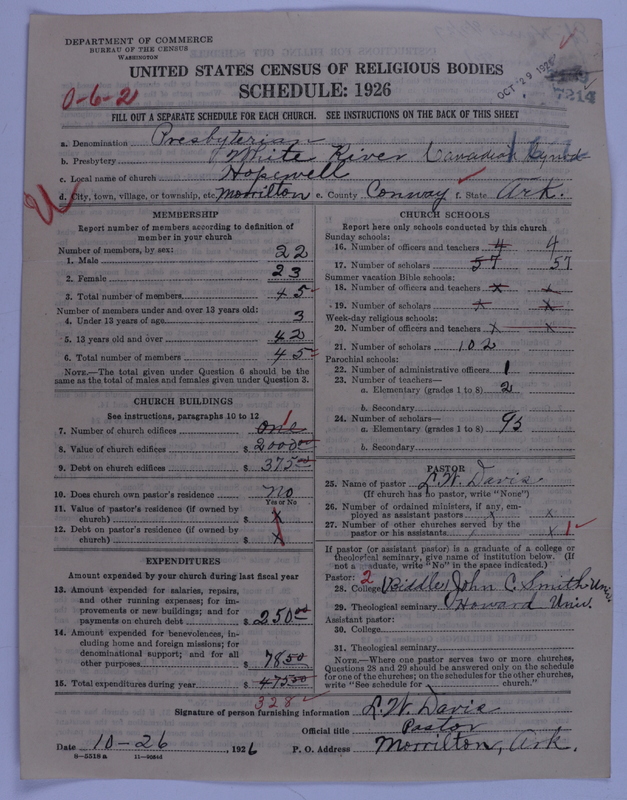 DEPARTMENT OF COMMERCE
BUREAU OF THE CENSUS
WASHINGTON
OCT 29 1926
7214
0-6-21
UNITED STATES CENSUS OF RELIGIOUS BODIES
SCHEDULE: 1926
FILL OUT A SEPARATE SCHEDULE FOR EACH CHURCH. SEE INSTRUCTIONS ON THE BACK OF THIS SHEET
a. Denomination Presbyterian
b. Presbytery White River Canadian Synod
c. Local name of church Hopewell
d. City, town, village, or township, etc. Morrilton e. County Conway f. State Ark.
MEMBERSHIP
Report number of members according to definition of
member in your church
Number of members, by sex:
1. Male 22
2. Female 23
3. Total number of members 45
Number of members under and over 13 years old:
4. Under 13 years of age 3
5. 13 years old and over 42
6. Total number of members 45
NOTE.—The total given under Question 6 should be the
same as the total of males and females given under Question 3.
CHURCH BUILDINGS
See instructions, paragraphs 10 to 12
7. Number of church edifices One 1
8. Value of church edifices $ 2000.00
9. Debt on church edifices $ 375.00
10. Does church own pastor's residence No
Yes or No
11. Value of pastor's residence (if owned by
church) $ x
12. Debt on pastor's residence (if owned by
church) $ x
EXPENDITURES
Amount expended by your church during last fiscal year
13. Amount expended for salaries, repairs,
and other running expenses; for im-
provements or new buildings; and for
payments on church debt $ 250.00
14. Amount expended for benevolences, in-
cluding home and foreign missions; for
denominational support; and for all
other purposes $ 78.50
15. Total expenditures during year $ 475.50
328
CHURCH SCHOOLS
Report here only schools conducted by this church
Sunday schools:
16. Number of officers and teachers 4 4
17. Number of scholars 57 57
Summer vacation Bible schools:
18. Number of officers and teachers x x
19. Number of scholars x x
Week-day religious schools:
20. Number of officers and teachers x x
21. Number of scholars 102
Parochial schools:
22. Number of administrative officers 1
23. Number of teachers—
a. Elementary (grades 1 to 8) 2
b. Secondary
24. Number of scholars—
a. Elementary (grades 1 to 8) 95
b. Secondary
PASTOR
25. Name of pastor L. W. Davis
(If church has no pastor, write "None")
26. Number of ordained ministers, if any, em-
ployed as assistant pastors x x
27. Number of other churches served by the
pastor or his assistants x 1
If pastor (or assistant pastor) is a graduate of a college or
theological seminary, give name of institution below. (If
not a graduate, write "No" in the space indicated.)
Pastor: 2
28. College (Biddle) John C. Smith Univ.
29. Theological seminary Howard Univ.
Assistant pastor:
30. College
31. Theological seminary
NOTE.—Where one pastor serves two or more churches,
Questions 28 and 29 should be answered only on the schedule
for one of the churches; on the schedules for the other churches,
write "See schedule for church."
Signature of person furnishing information L. W. Davis
Official title Pastor
Date 10-26, 1926 P. O. Address Morrilton, Ark.
8—5318 a